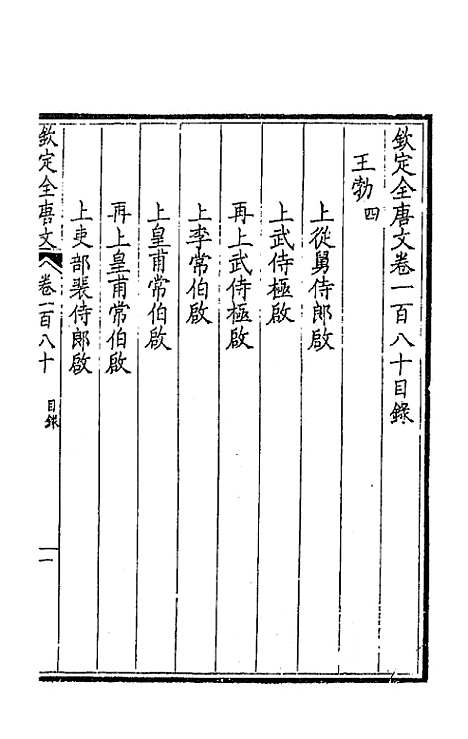 欽定全唐文卷一百八十目錄
王勃四
上從舅侍郎啟
上武侍極啟
再上武侍極啟
上李常伯啟
上皇甫常伯啟
再上皇甫常伯啟
上吏部裴侍郎啟
欽定全唐文 卷一百八十 目錄 一